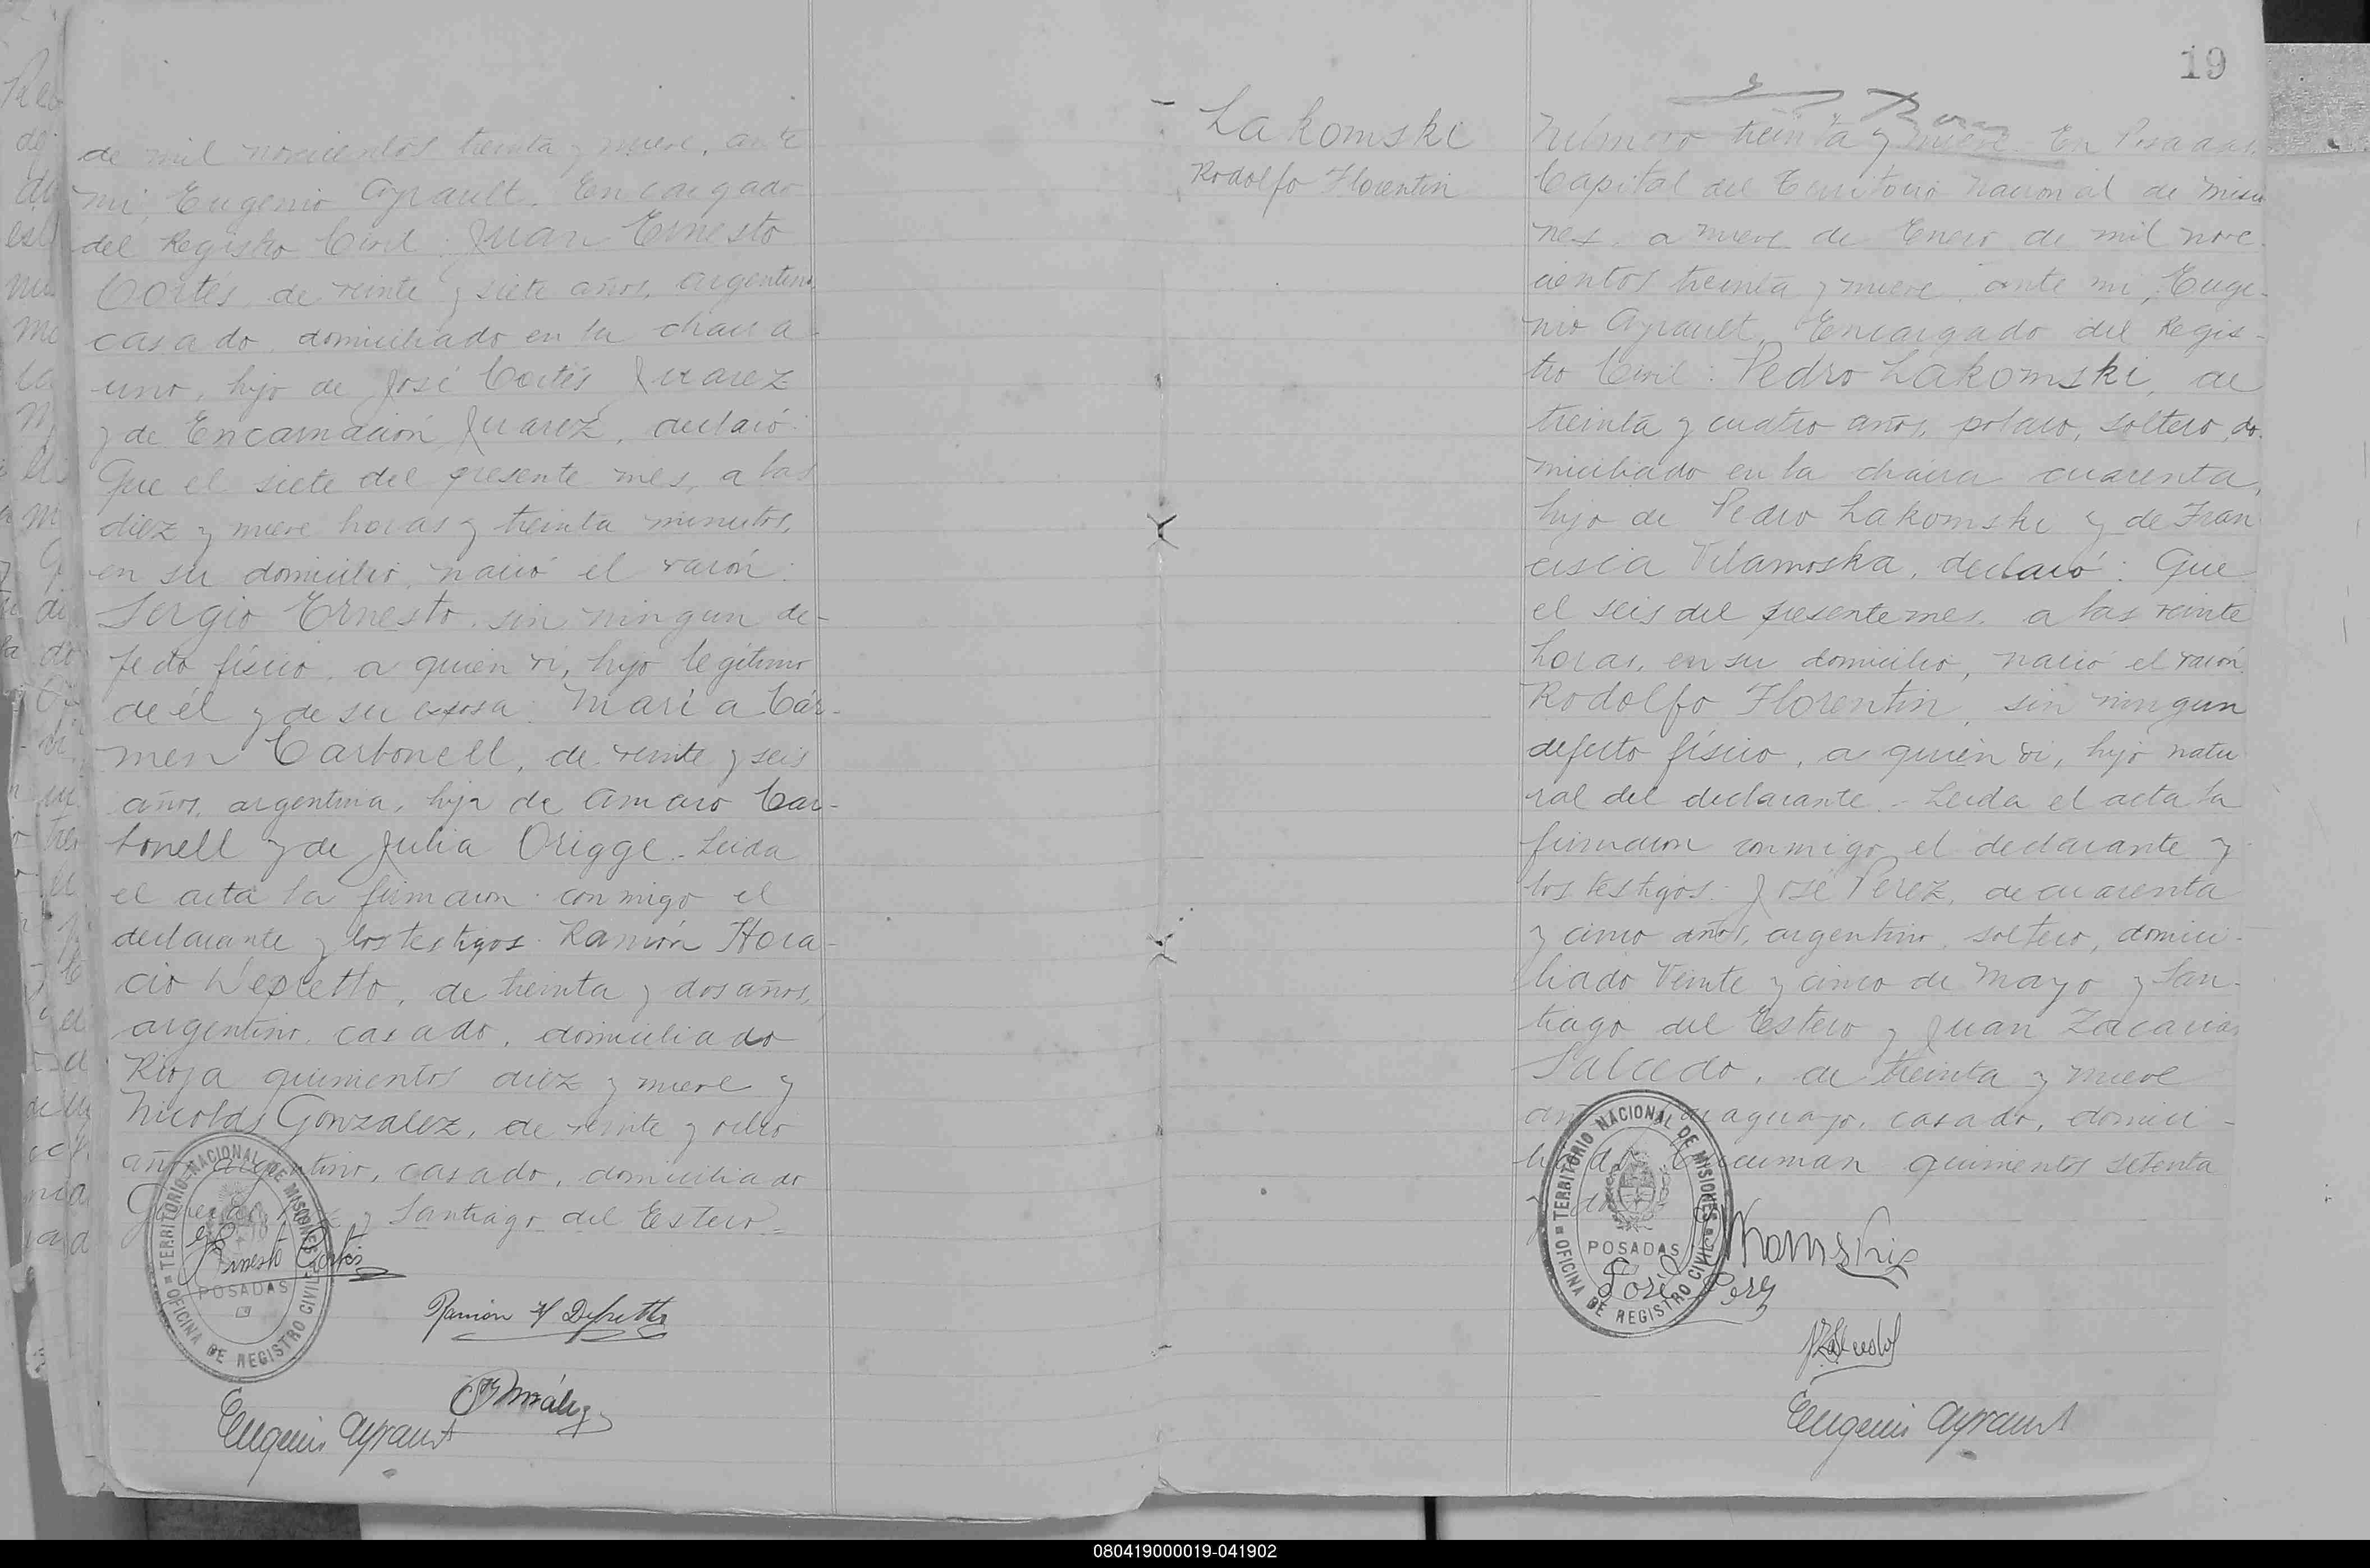 de mil novecientos treinta y nueve, ante
mi, Eugenio Ayrault, Encargado
del Registro Civil: Juan Ernesto
Cortés, de veinte y siete años, argentino
casado, domiciliado en la chacra
uno, hijo de José Cortés Juarez
y de Encarnación Juarez, declaró:
Que el siete del presente mes, a las
diez y nueve horas y treinta minutos,
en su domicilio, nació el varón:
Sergio Ernesto, sin ningun de-
fecto físico, a quien vi, hijo legítimo
de él y de su esposa: María Cár-
men Carbonell, de veinte y seis
años, argentina, hija de Amaro Car-
bonell y de Julia Origge.- Leida
el acta la firmaron conmigo el
declarante y los testigos: Ramón Hora-
cio Depretto, de treinta y dos años,
argentino, casado, domiciliado
Rioja quinientos diez y nueve y
Nicolás Gonzalez, de veinte y ocho
años argentino, casado, domiciliado
y Santiago del Estero.=
TERRITORIO NACIONAL DE MISIONES
POSADAS
OFICINA DE REGISTRO CIVIL
Ernesto Cortés
Ramón H Depretto
Eugenio Ayrault
19
Lakomski
Rodolfo Florentin
Número treinta y nueve. En Posadas,
Capital del Territorio Nacional de Misio
nes, a nueve de Enero de mil nove
cientos treinta y nueve, ante mi, Euge-
nio Ayrault, Encargado del Regis-
tro Civil: Pedro Lakomski, de
treinta y cuatro años, polaco, soltero, do-
miciliado en la chacra cuarenta,
hijo de Pedro Lakomski y de Fran
cisca Vilamoska, declaró: Que
el seis del presente mes, a las veinte
horas, en su domicilio, nació el varón
Rodolfo Florentin, sin ningun
defecto físico, a quien vi, hijo natu
ral del declarante.- Leida el acta la
firmaron conmigo el declarante y
los testigos: José Perez, de cuarenta
y cinco años, argentino, soltero, domici-
liado Veinte y cinco de Mayo y San-
tiago del Estero y Juan Zacarias
Salcedo, de treinta y nueve
casado, domici-
quinientos setenta
TERRITORIO NACIONAL DE MISIONES
POSADAS
OFICINA DE REGISTRO CIVIL
José Perez
Eugenio Ayrault
080419000019-041902